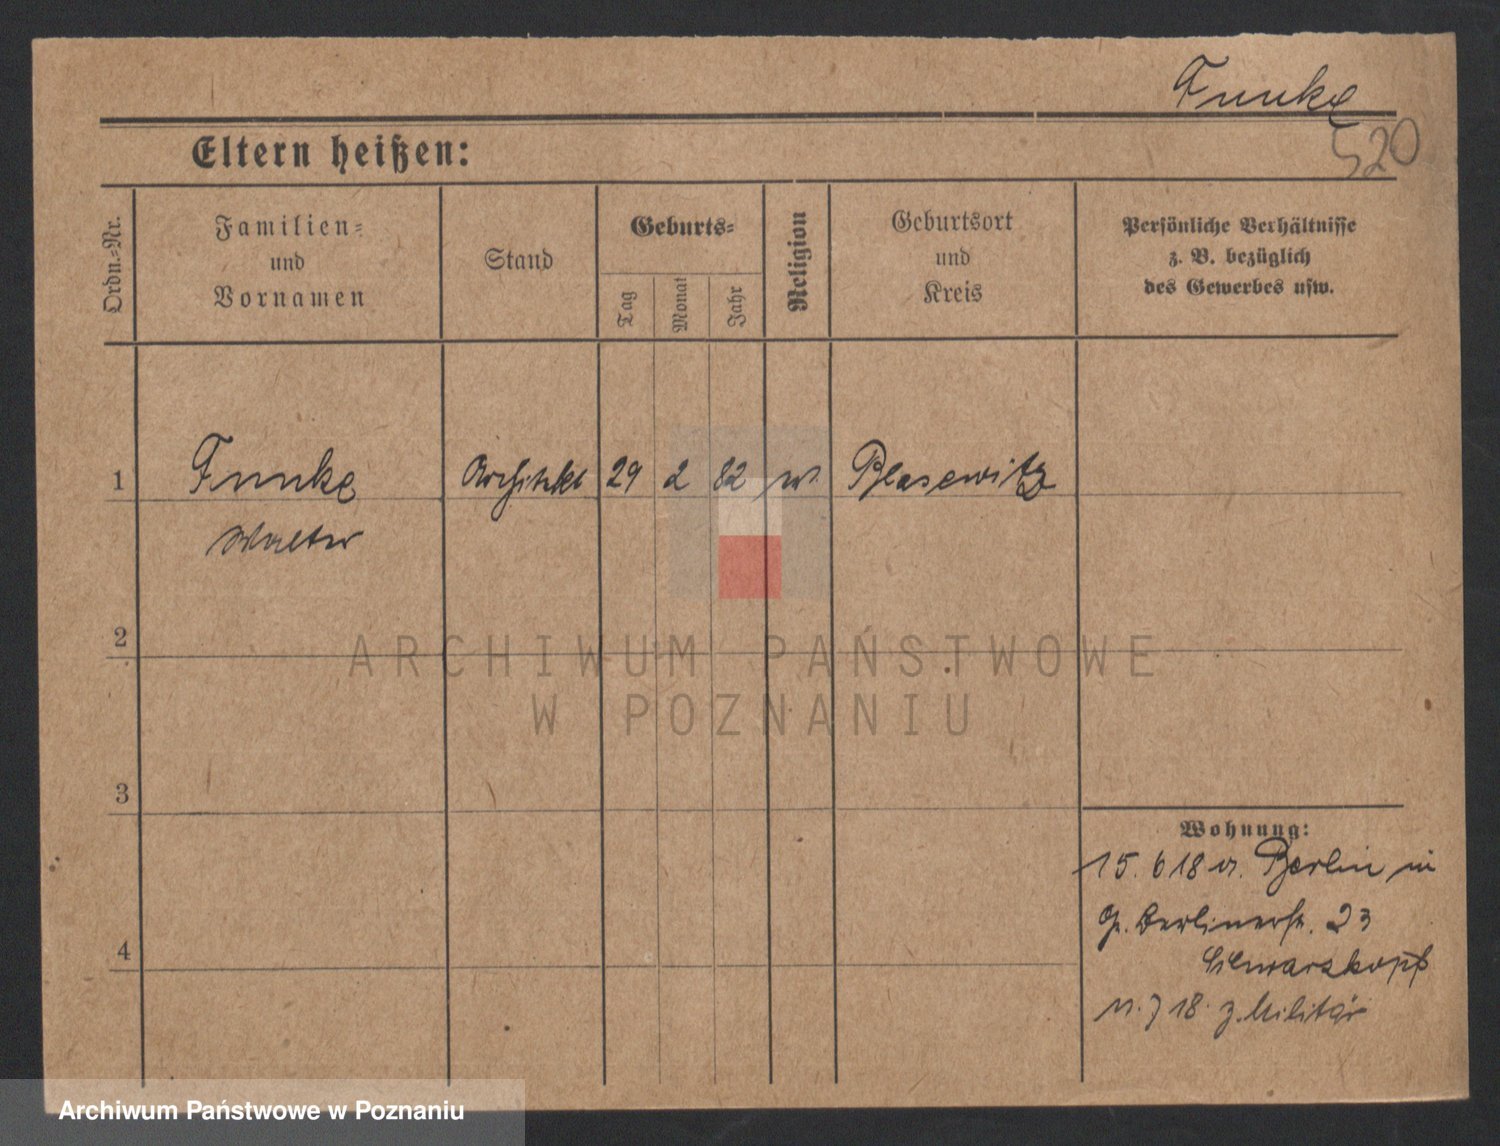 Funke
520
Eltern heißen:
Ordn.-Nr.
Familien-
und
Vornamen
Stand
Geburts-
Tag
Monat
Jahr
Religion
Geburtsort
und
Kreis
Persönliche Verhältnisse
z. B. bezüglich
des Gewerbes usw.
1
Funke
Architekt
29
2
82
Blasewitz
Walter
2
ARCHIWUM PAŃSTWOWE
W POZNANIU
3
Wohnung:
15. 6 18 v. Berlin in
Berlinerstr. 23
4
Schwarzkopf
7 18. z. Militär
Archiwum Państwowe w Poznaniu